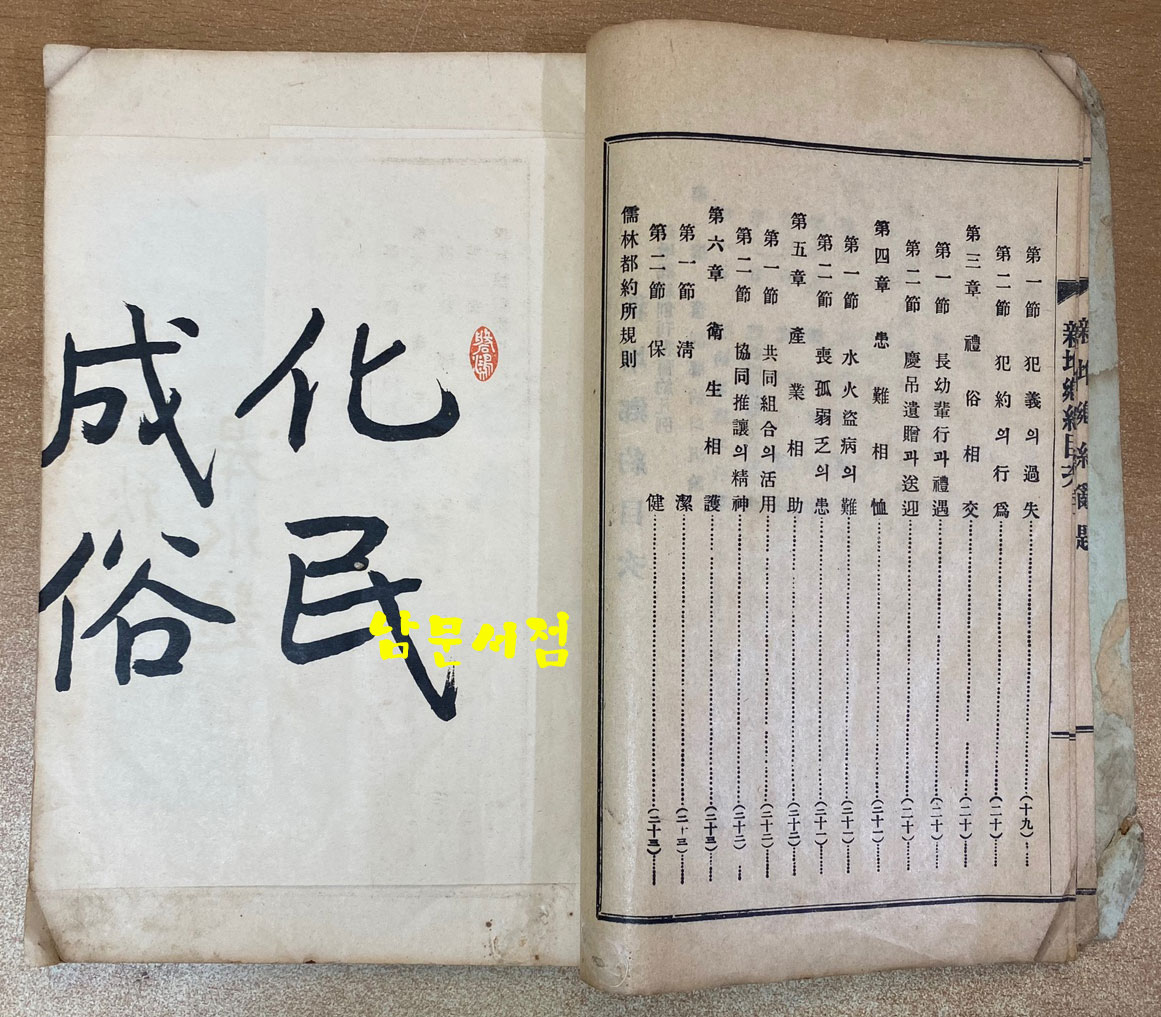 第一節 犯義의過失……(十九)
第二節 犯約의行爲……(二十)
第三章 禮俗相交……(二十)
第一節 長幼輩行과禮遇……(二十)
第二節 慶吊遺贈과送迎……(二十)
第四章 患難相恤……(二十一)
第一節 水火盜病의難……(二十一)
第二節 喪孤弱乏의患……(二十一)
第五章 產業相助……(二十二)
第一節 共同組合의活用……(二十二)
第二節 協同推讓의精神……(二十二)
第六章 衛生相護……(二十三)
第一節 淸潔……(二十三)
第二節 保健……(二十三)
儒林都約所規則
化民
成俗
남문서점